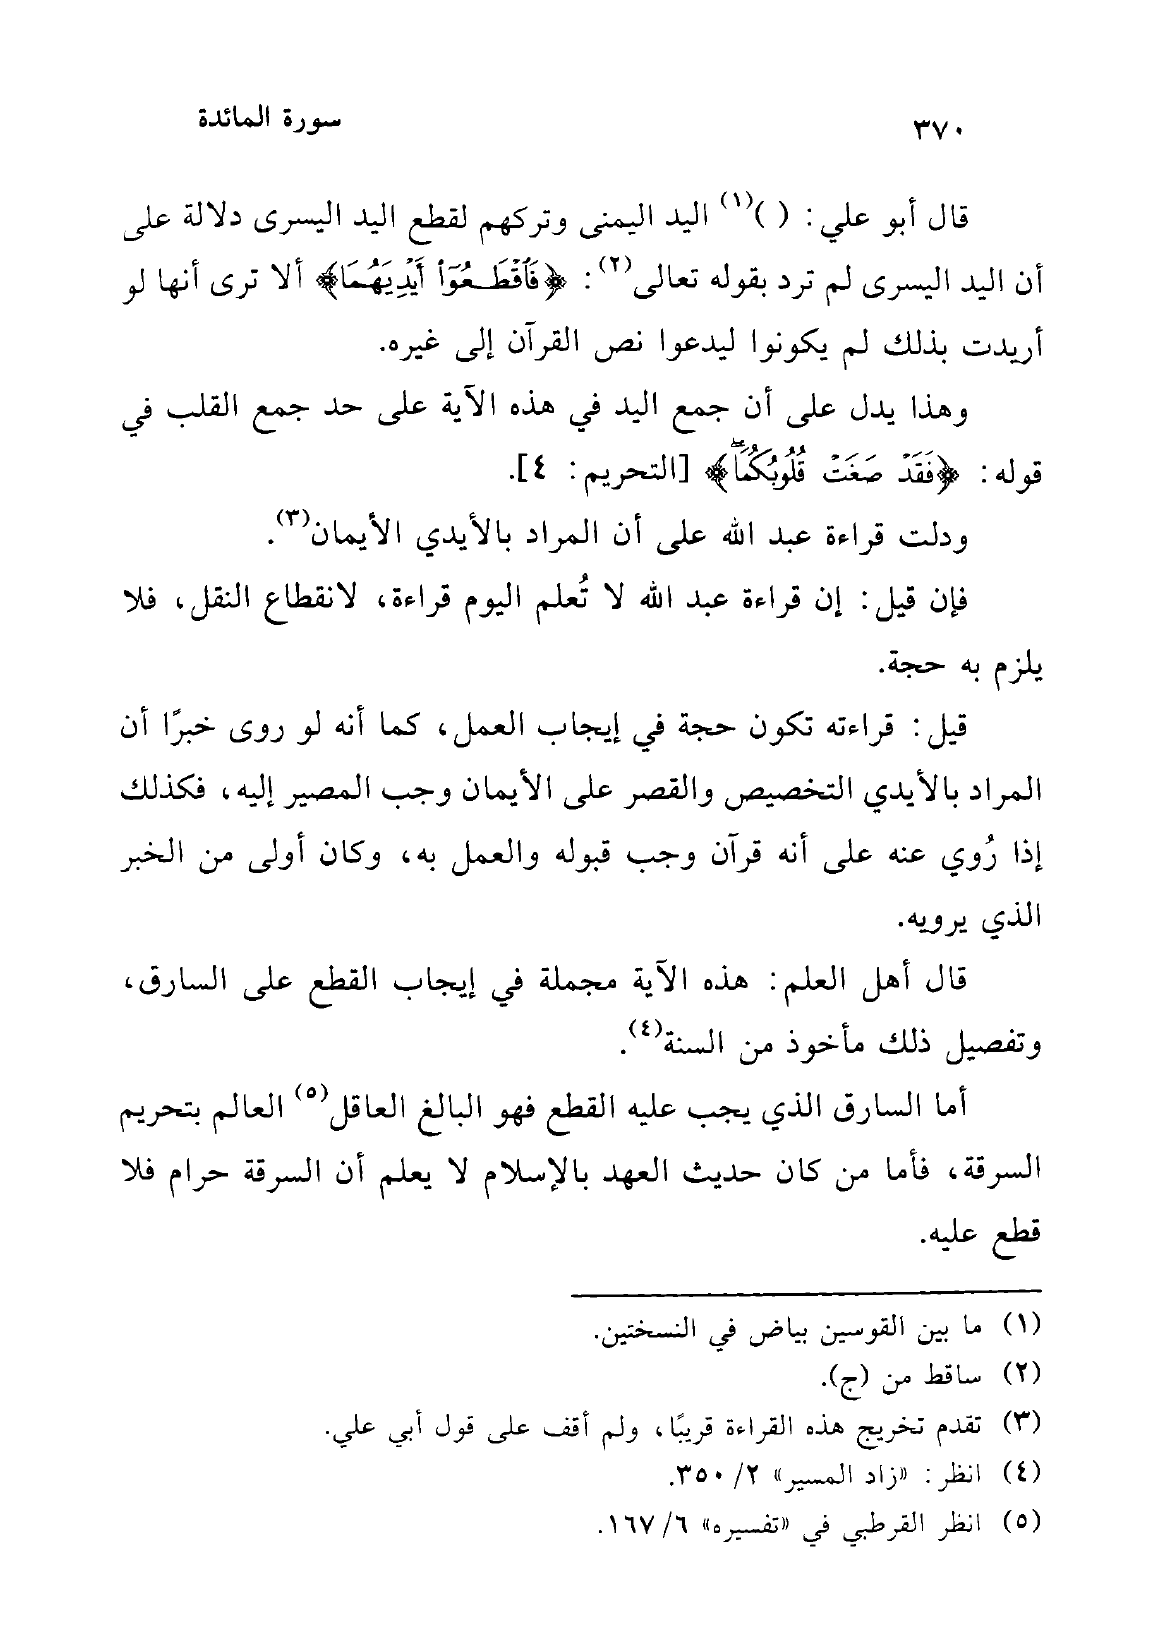 ٣٧٠
سورة المائدة
قال أبو علي: ( )(١) اليد اليمنى وتركهم لقطع اليد اليسرى دلالة على
أن اليد اليسرى لم ترد بقوله تعالى(٢): ﴿فَٱقْطَعُوٓا۟ أَيْدِيَهُمَا﴾ ألا ترى أنها لو
أريدت بذلك لم يكونوا ليدعوا نص القرآن إلى غيره.
وهذا يدل على أن جمع اليد في هذه الآية على حد جمع القلب في
قوله: ﴿فَقَدْ صَغَتْ قُلُوبُكُمَاۖ﴾ [التحريم: ٤].
ودلت قراءة عبد الله على أن المراد بالأيدي الأيمان(٣).
فإن قيل: إن قراءة عبد الله لا تُعلم اليوم قراءة، لانقطاع النقل، فلا
يلزم به حجة.
قيل: قراءته تكون حجة في إيجاب العمل، كما أنه لو روى خبرًا أن
المراد بالأيدي التخصيص والقصر على الأيمان وجب المصير إليه، فكذلك
إذا رُوي عنه على أنه قرآن وجب قبوله والعمل به، وكان أولى من الخبر
الذي يرويه.
قال أهل العلم: هذه الآية مجملة في إيجاب القطع على السارق،
وتفصيل ذلك مأخوذ من السنة(٤).
أما السارق الذي يجب عليه القطع فهو البالغ العاقل(٥) العالم بتحريم
السرقة، فأما من كان حديث العهد بالإسلام لا يعلم أن السرقة حرام فلا
قطع عليه.
(١) ما بين القوسين بياض في النسختين.
(٢) ساقط من (ج).
(٣) تقدم تخريج هذه القراءة قريبًا، ولم أقف على قول أبي علي.
(٤) انظر: «زاد المسير» ٢/ ٣٥٠.
(٥) انظر القرطبي في «تفسيره» ٦/ ١٦٧.